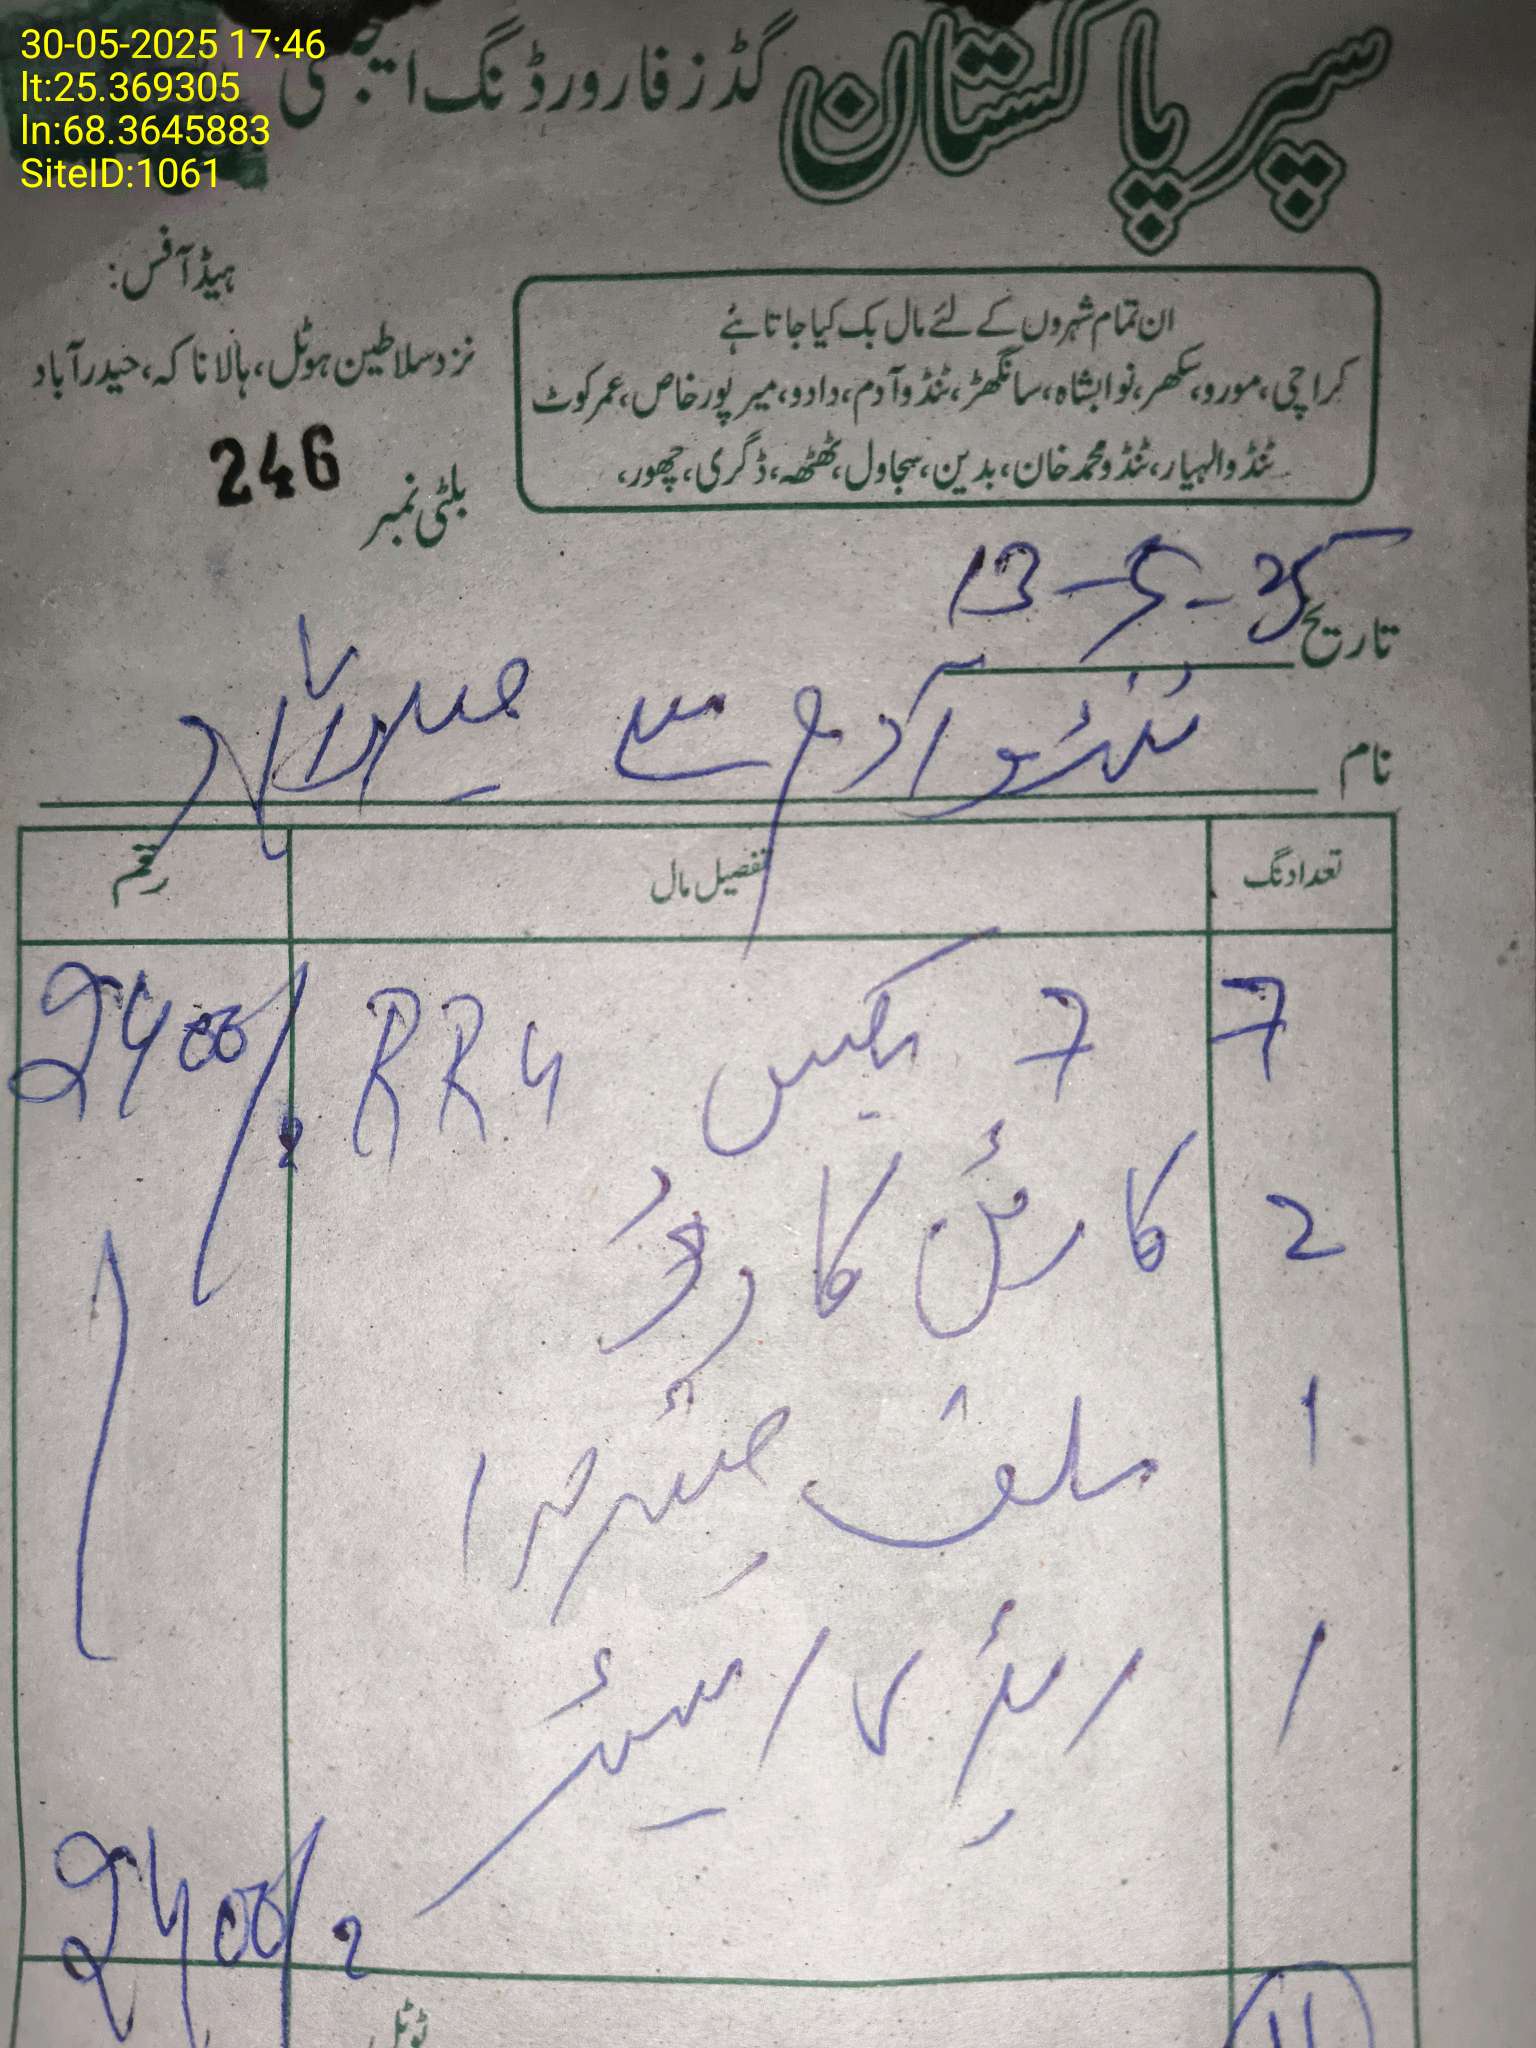 30-05-2025 17:46
lt:25.369305
ln:68.3645883
SiteID:1061
سپر پاکستان گڈز فارورڈنگ ایجنسی
ہیڈ آفس:
نزد سلاطین ہوٹل، ہالا ناکہ، حیدرآباد
ان تمام شہروں کے لئے مال بک کیا جاتا ہے
کراچی، مورو، سکھر، نوابشاہ، سانگھڑ، ٹنڈوآدم، دادو، میرپورخاص، عمرکوٹ
ٹنڈوالہیار، ٹنڈو محمد خان، بدین، سجاول، ٹھٹھہ، ڈگری، چھور،
بلٹی نمبر 246
تاریخ 13-5-25
نام ٹنڈو آدم سے حیدرآباد
تعداد نگ تفصیل مال رقم
7 7 بکس RR4 2400/
2 کارٹن کارڈ
1 سلف
1
2400/
ٹوٹل
11